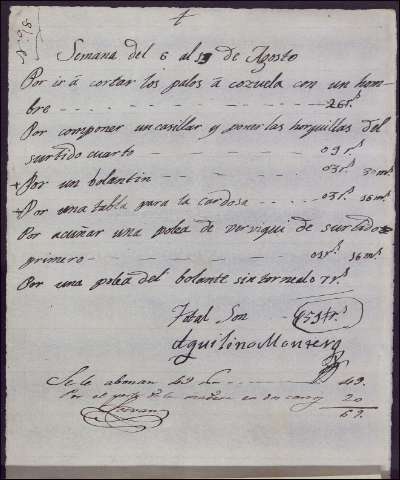 Semana del 6 al 13 de Agosto
Por ir á cortar los palos á cozuela con un hom-
bre - - - - - 26 r.s
Por componer un casillar y poner las horquillas del
surtido cuarto - - - 09 r.s
Por un bolantin - - - - 03 r.s 30 m.s
Por una tabla para la cardosa - - - 03 r.s 16 m.s
Por acuñar una polea de versiqui de surtido
primero - - - - 03 r.s 16 m.s
Por una polea del bolante sin tornealo 7 r.s
Total Son
Aquilino Montero
Se le abonan 49 - - - 49.
Por el de la madera en 20
69.